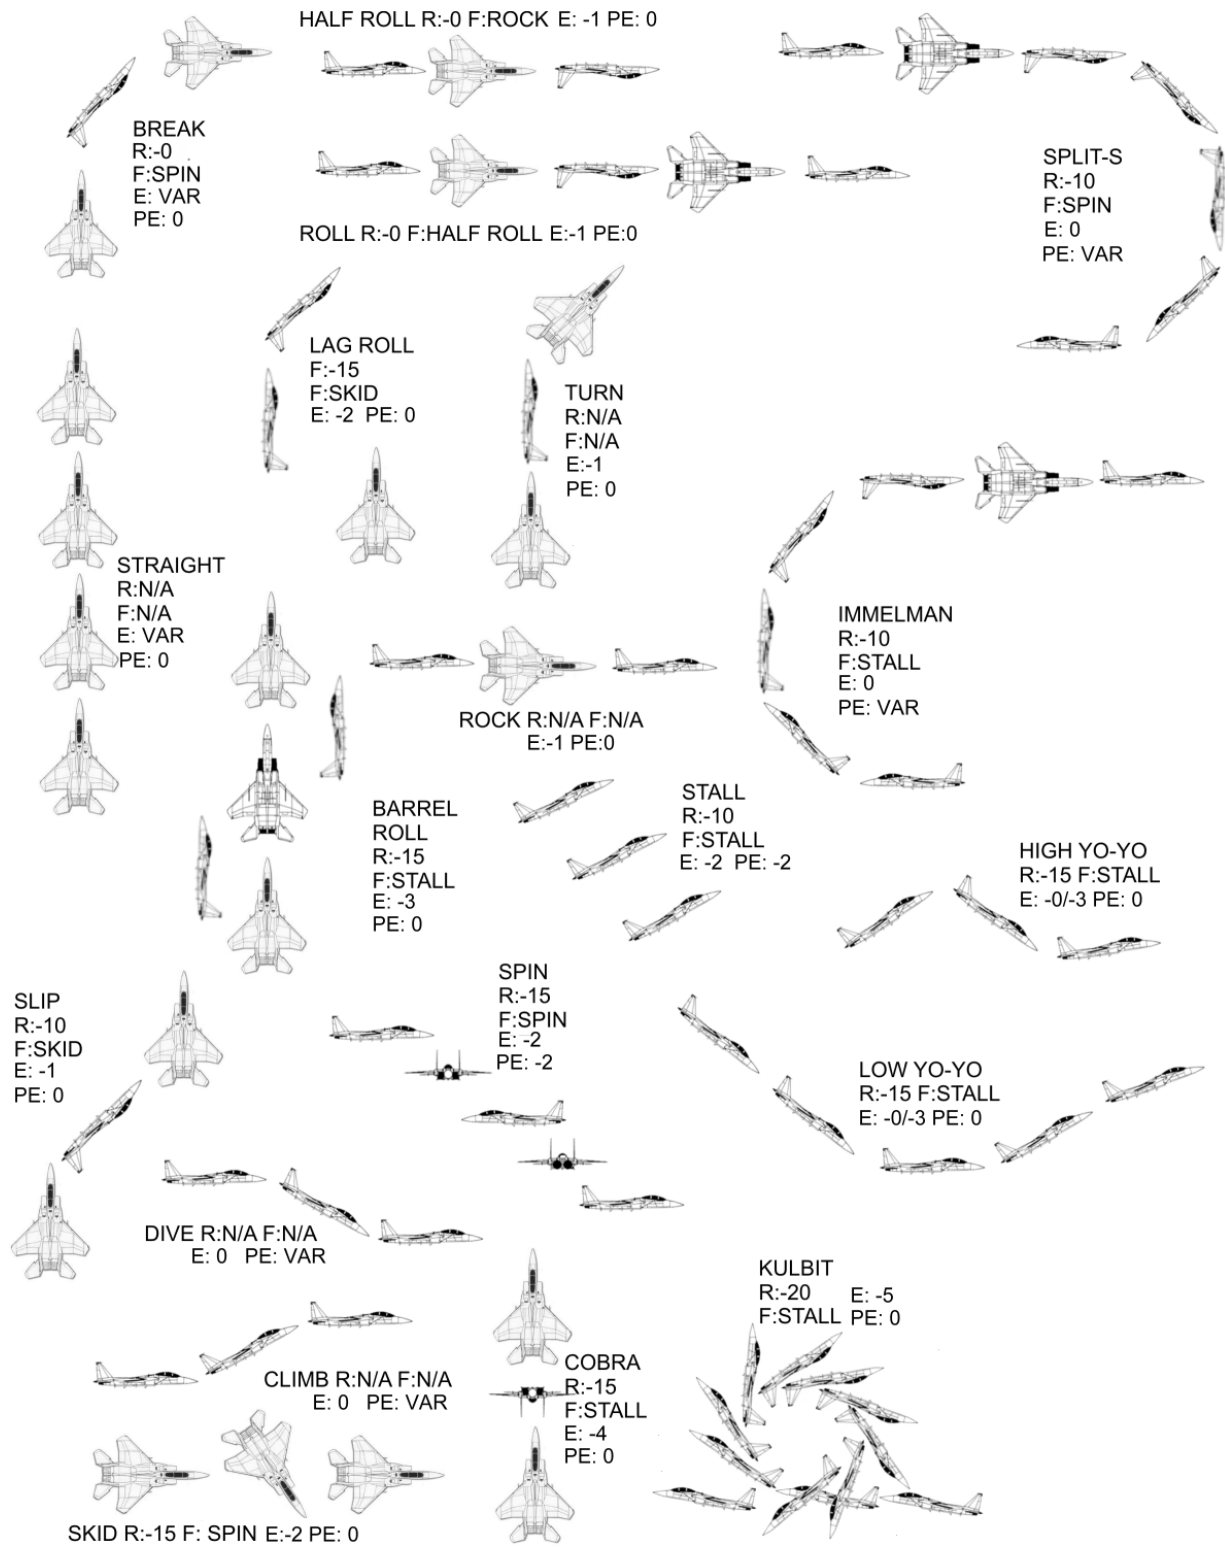 HALF ROLL R:-0 F:ROCK E: -1 PE: 0
BREAK
R:-0
F:SPIN
E: VAR
PE: 0
SPLIT-S
R:-10
F:SPIN
E: 0
PE: VAR
ROLL R:-0 F:HALF ROLL E:-1 PE:0
LAG ROLL
F:-15
F:SKID
E: -2 PE: 0
TURN
R:N/A
F:N/A
E:-1
PE: 0
STRAIGHT
R:N/A
F:N/A
E: VAR
PE: 0
IMMELMAN
R:-10
F:STALL
E: 0
PE: VAR
ROCK R:N/A F:N/A
E:-1 PE:0
BARREL
ROLL
R:-15
F:STALL
E: -3
PE: 0
STALL
R:-10
F:STALL
E: -2 PE: -2
HIGH YO-YO
R:-15 F:STALL
E: -0/-3 PE: 0
SLIP
R:-10
F:SKID
E: -1
PE: 0
SPIN
R:-15
F:SPIN
E: -2
PE: -2
LOW YO-YO
R:-15 F:STALL
E: -0/-3 PE: 0
DIVE R:N/A F:N/A
E: 0 PE: VAR
KULBIT
R:-20 E: -5
F:STALL PE: 0
CLIMB R:N/A F:N/A
E: 0 PE: VAR
COBRA
R:-15
F:STALL
E: -4
PE: 0
SKID R:-15 F: SPIN E:-2 PE: 0